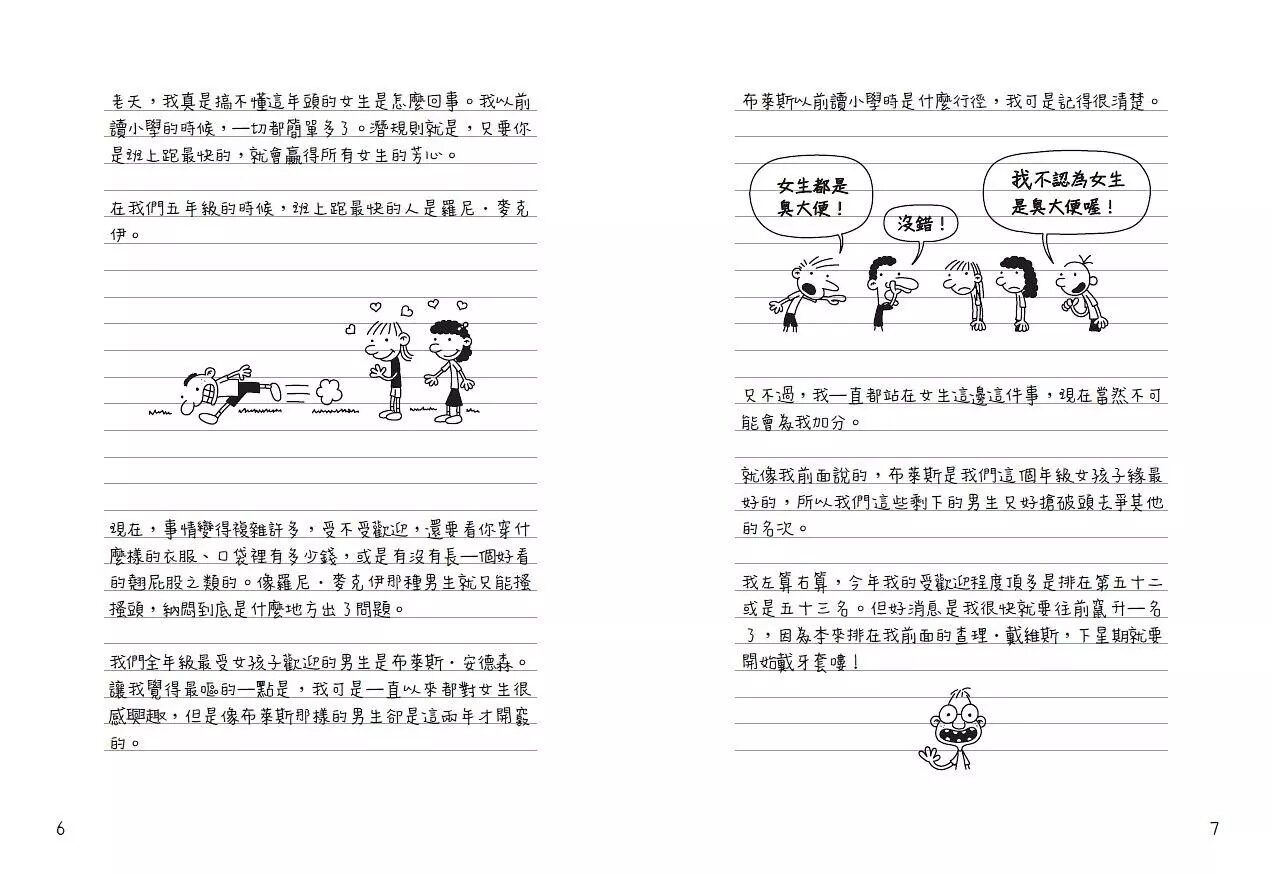 老天，我真是搞不懂這年頭的女生是怎麼回事。我以前
讀小學的時候，一切都簡單多了。潛規則就是，只要你
是班上跑最快的，就會贏得所有女生的芳心。
在我們五年級的時候，班上跑最快的人是羅尼·麥克
伊。
現在，事情變得複雜許多，受不受歡迎，還要看你穿什
麼樣的衣服、口袋裡有多少錢，或是有沒有長一個好看
的翹屁股之類的。像羅尼·麥克伊那種男生就只能搔
搔頭，納悶到底是什麼地方出了問題。
我們全年級最受女孩子歡迎的男生是布萊斯·安德森。
讓我覺得最嘔的一點是，我可是一直以來都對女生很
感興趣，但是像布萊斯那樣的男生卻是這兩年才開竅
的。
6
布萊斯以前讀小學時是什麼行徑，我可是記得很清楚。
女生都是
臭大便！
沒錯！
我不認為女生
是臭大便喔！
只不過，我一直都站在女生這邊這件事，現在當然不可
能會為我加分。
就像我前面說的，布萊斯是我們這個年級女孩子緣最
好的，所以我們這些剩下的男生只好搶破頭去爭其他
的名次。
我左算右算，今年我的受歡迎程度頂多是排在第五十二
或是五十三名。但好消息是我很快就要往前竄升一名
了，因為本來排在我前面的查理·戴維斯，下星期就要
開始戴牙套嘍！
7